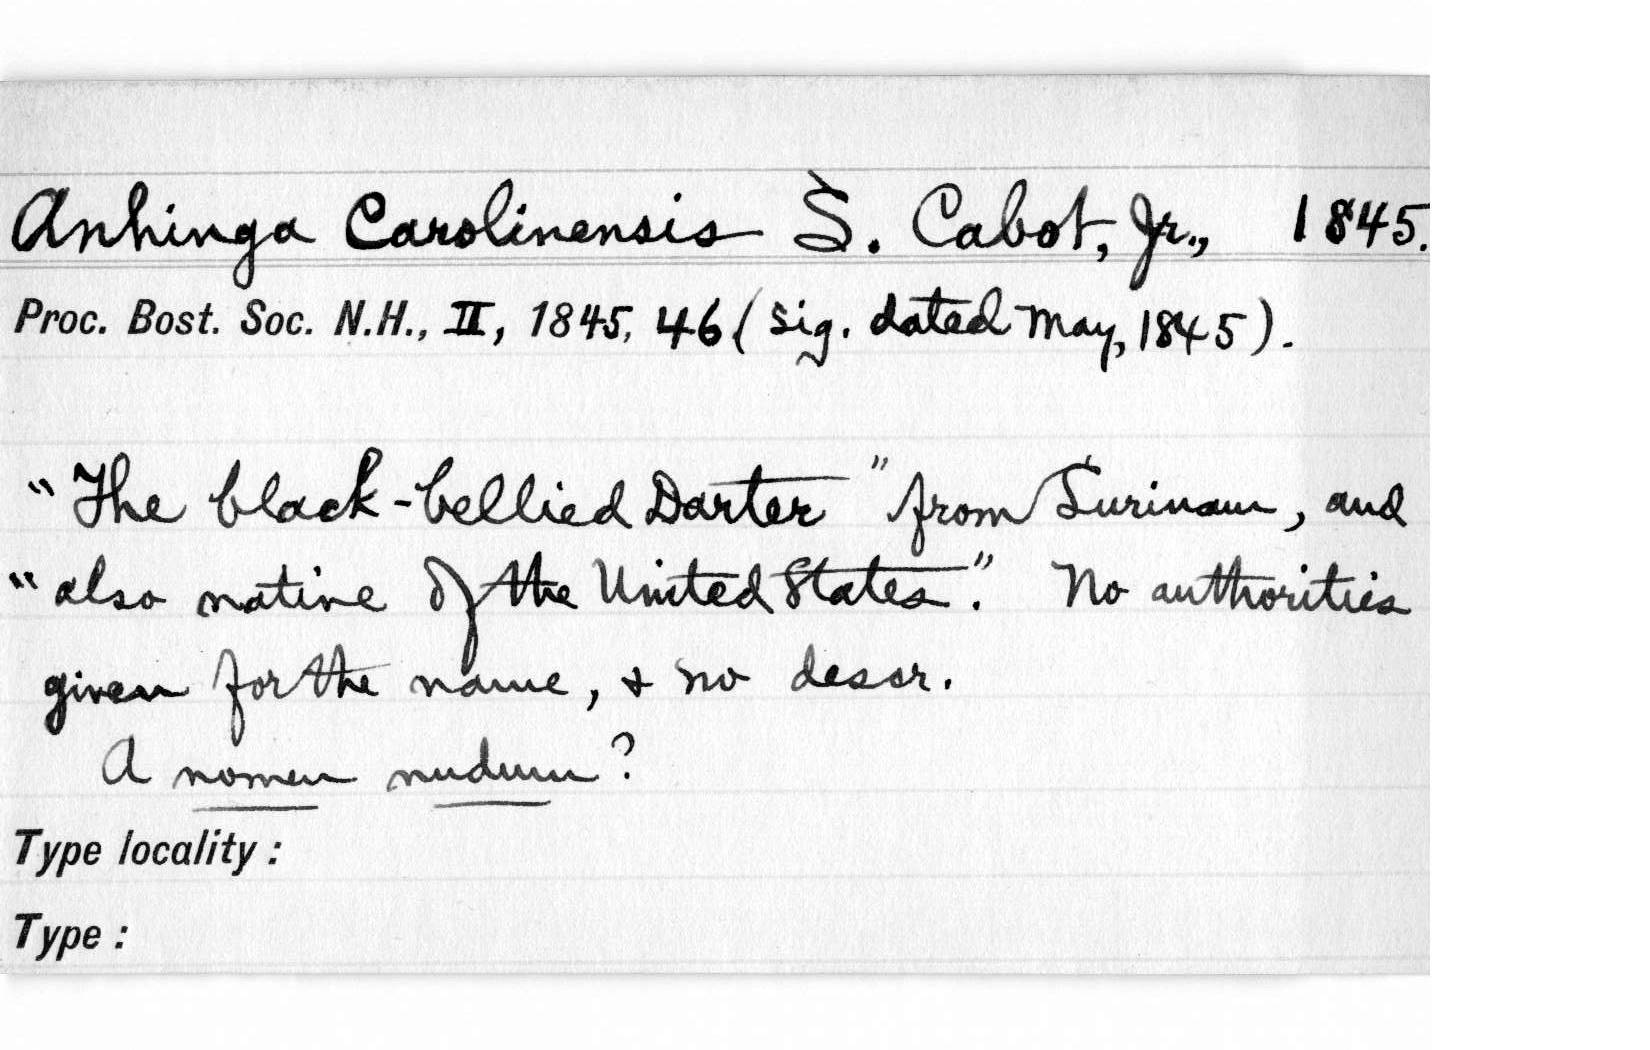 Anhinga Carolinensis S. Cabot, Jr., 1845.
Proc. Bost. Soc. N.H., II, 1845, 46 (sig. dated May, 1845).
"The black-bellied Darter" from Surinam, and
"also native of the United States." No authorities
given for the name, & no descr.
A nomen nudum?
Type locality:
Type: